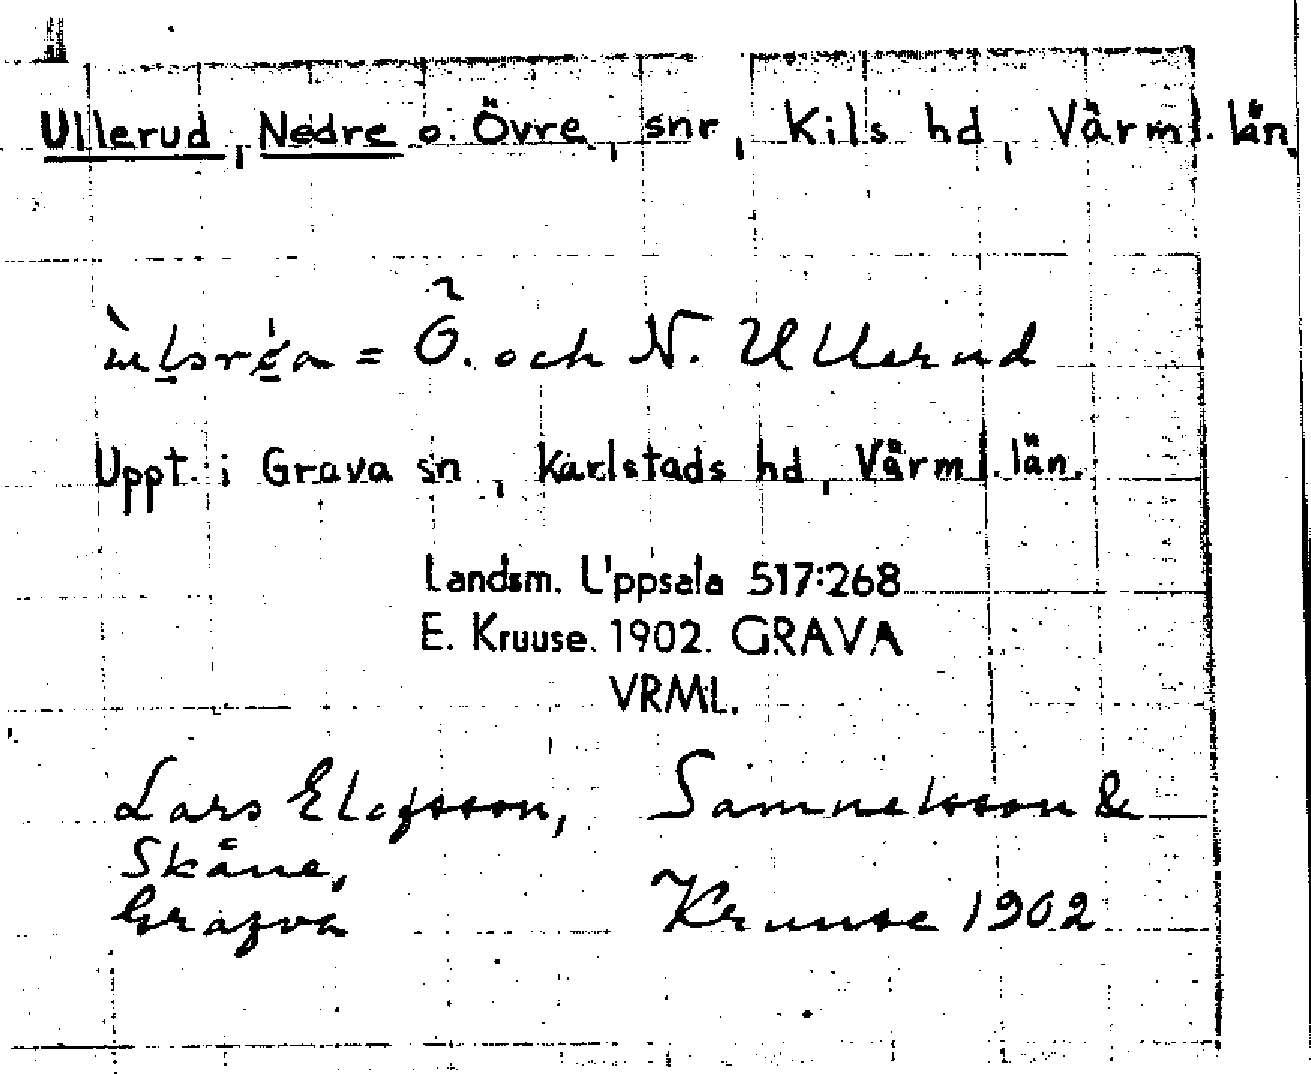 Ullerud, Nedre o. Övre, snr, Kils hd, Värml. län.
= Ö. och N. Ullerud
Uppt. i Grava sn, Karlstads hd, Värml. län.
Landsm. Uppsala 517:268
E. Kruuse. 1902. GRAVA
VRML.
Lars Elofsson, Samuelsson &
Skåne,
Grafva Kruuse 1902